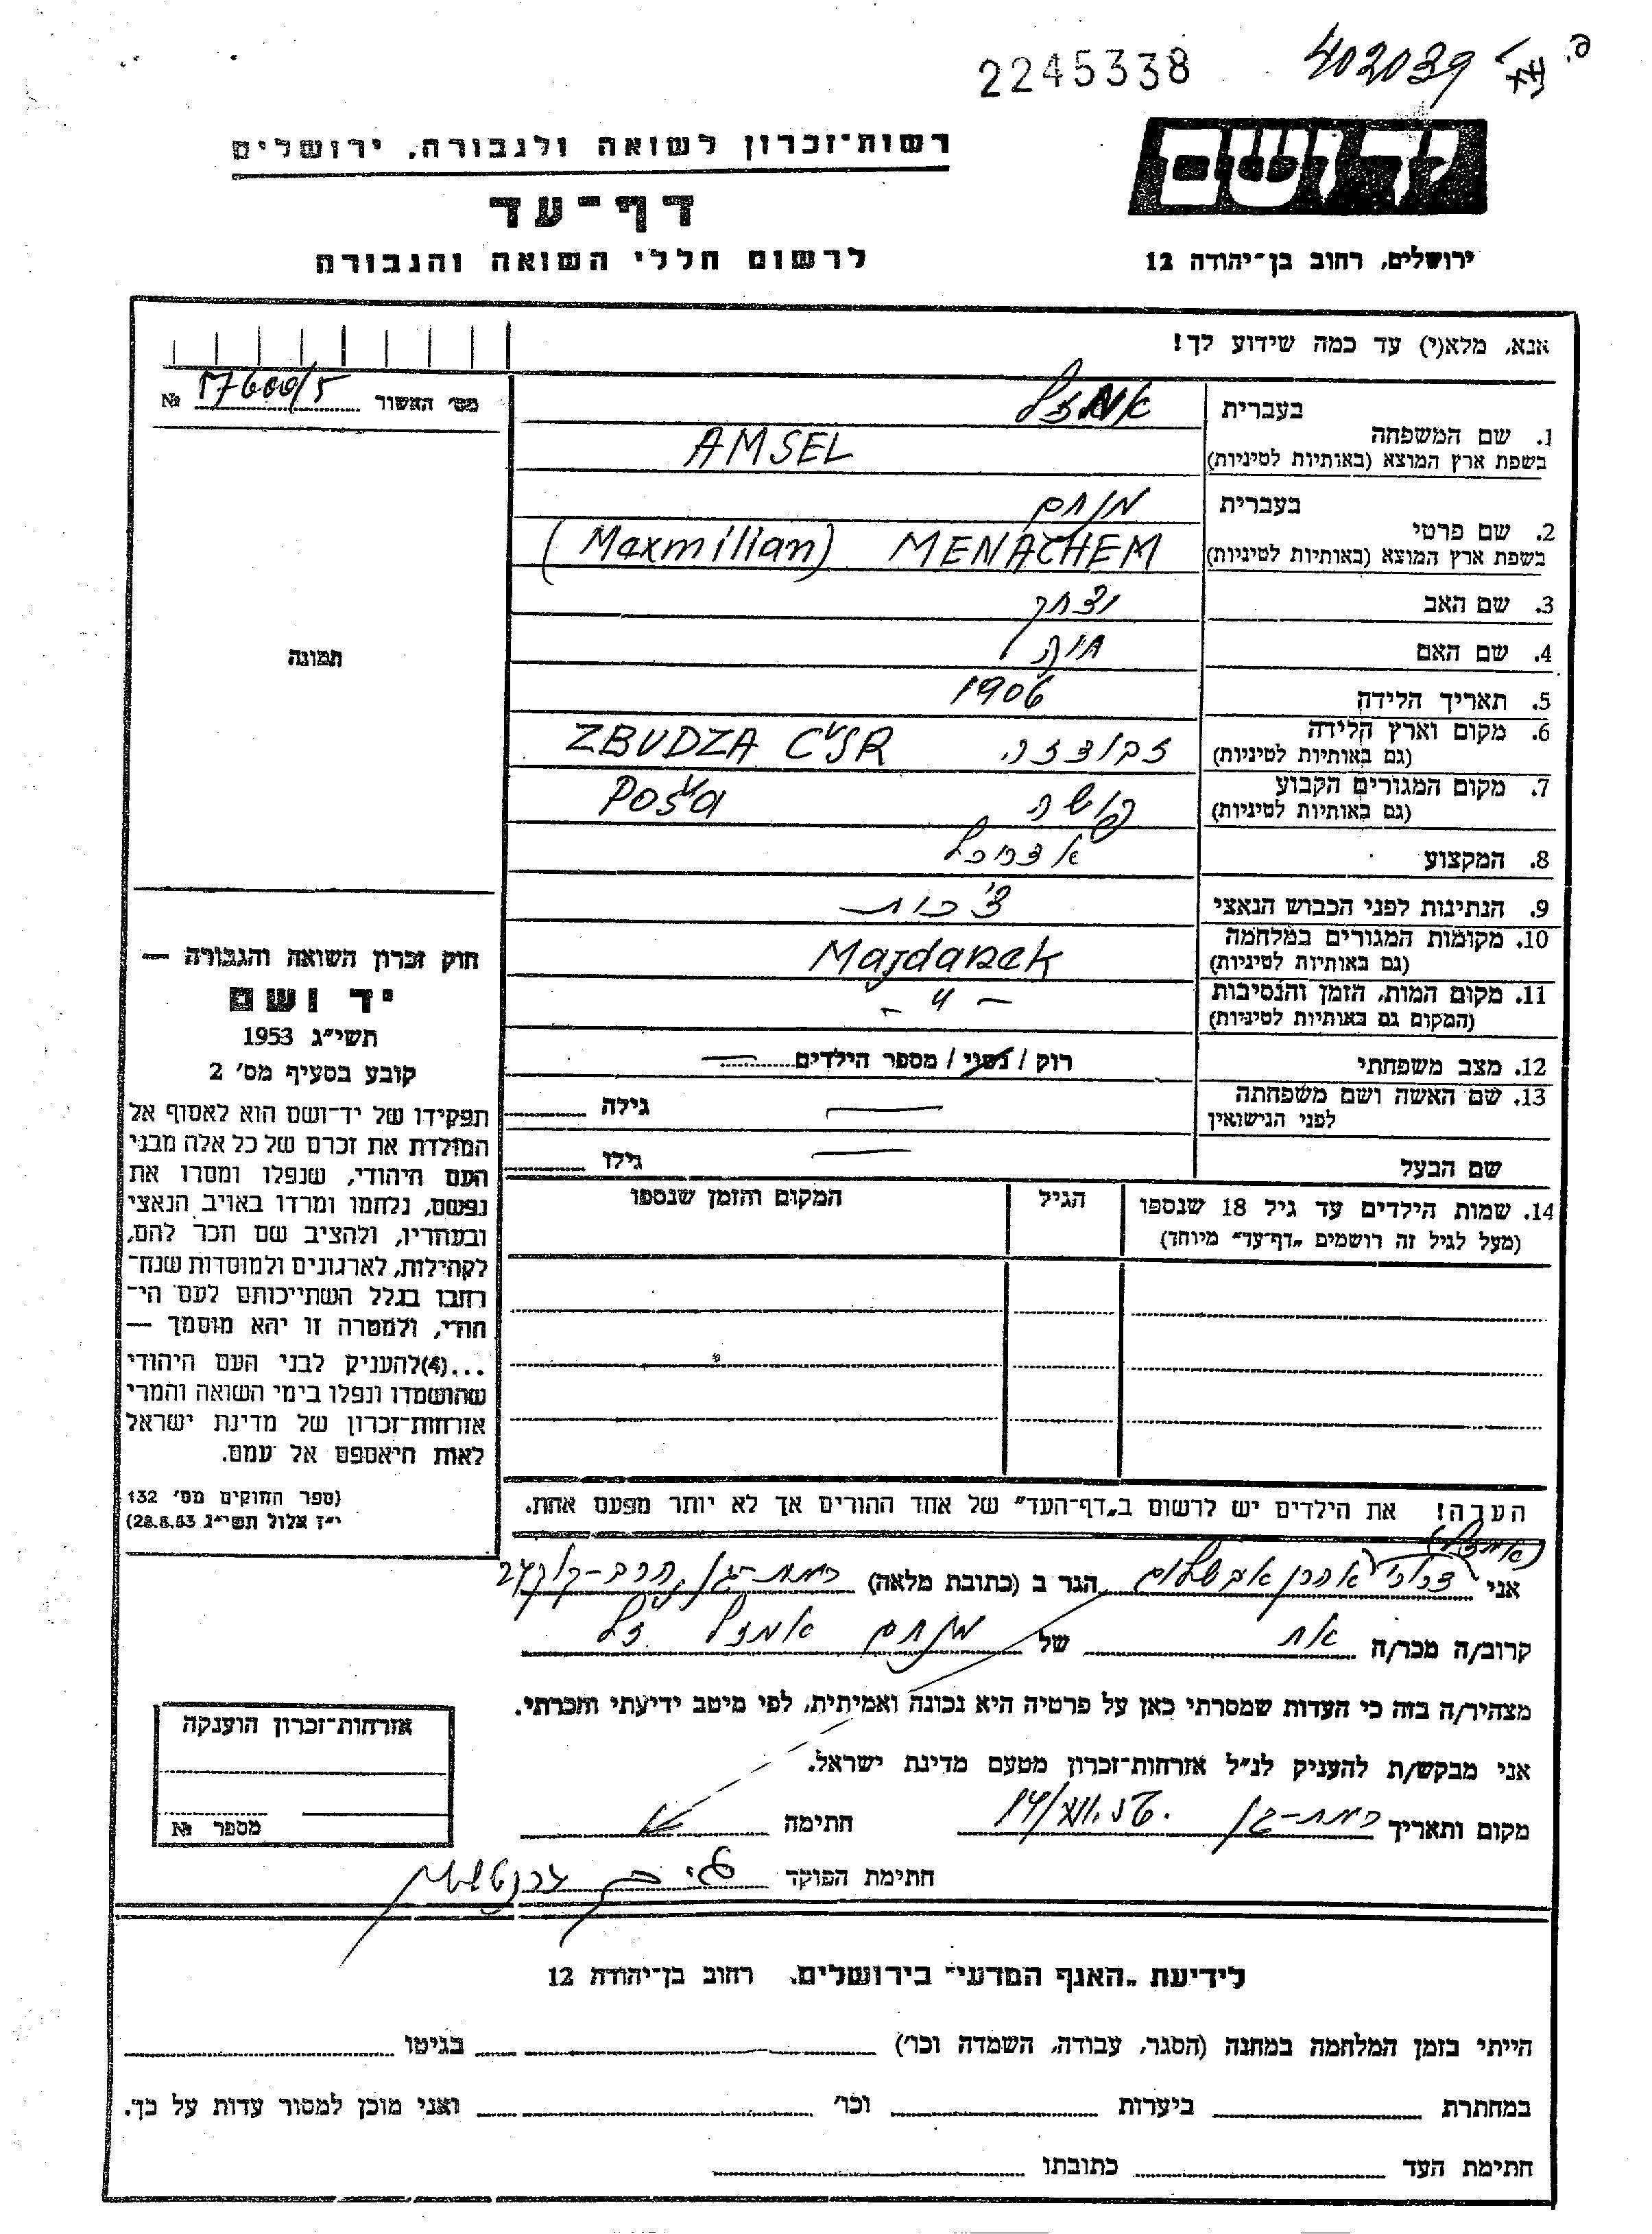 2245338 402039
רשות־זכרון לשואה ולגבורה, ירושלים
יד ושם
דף־עד
לרשום חללי השואה והגבורה
ירושלים, רחוב בן־יהודה 12
אנא, מלא(י) עד כמה שידוע לך!
מס׳ האשור 57600/5 №
1. שם המשפחה
בעברית אמזל
בשפת ארץ המוצא (באותיות לטיניות) AMSEL
2. שם פרטי
בעברית מנחם
בשפת ארץ המוצא (באותיות לטיניות) MENACHEM (Maxmilian)
3. שם האב יצחק
4. שם האם חיה
5. תאריך הלידה 1906
6. מקום וארץ הלידה זבודזה ZBUDZA ČSR
(גם באותיות לטיניות)
7. מקום המגורים הקבוע פושה Poša
(גם באותיות לטיניות)
8. המקצוע
9. הנתינות לפני הכבוש הנאצי צ׳כית
10. מקומות המגורים במלחמה Majdanek
(גם באותיות לטיניות)
11. מקום המות, הזמן והנסיבות - 4 -
(המקום גם באותיות לטיניות)
12. מצב משפחתי רוק / נשוי / מספר הילדים —
13. שם האשה ושם משפחתה — גילה
לפני הנישואין
שם הבעל — גילו
14. שמות הילדים עד גיל 18 שנספו הגיל המקום והזמן שנספו
(מעל לגיל זה רושמים „דף־עד" מיוחד)
הערה! את הילדים יש לרשום ב„דף־העד" של אחד ההורים אך לא יותר מפעם אחת.
תמונה
חוק זכרון השואה והגבורה —
יד ושם
תשי״ג 1953
קובע בסעיף מס׳ 2
תפקידו של יד־ושם הוא לאסוף אל
המולדת את זכרם של כל אלה מבני
העם היהודי, שנפלו ומסרו את
נפשם, נלחמו ומרדו באויב הנאצי
ובעוזריו, ולהציב שם וזכר להם,
לקהילות, לארגונים ולמוסדות שנח־
רבו בגלל השתייכותם לעם הי־
הודי, ולמטרה זו יהא מוסמך —
...(4) להעניק לבני העם היהודי
שהושמדו ונפלו בימי השואה והמרי
אזרחות־זכרון של מדינת ישראל
לאות היאספם אל עמם.
(ספר החוקים מס׳ 132
י״ז אלול תשי״ג 28.8.53)
(אמזל)
אני אהרן אבשלום הגר ב (כתובת מלאה) רמת-גן, הרב-קוק
קרוב/ה מכר/ה אח של מנחם אמזל ז״ל
מצהיר/ה בזה כי העדות שמסרתי כאן על פרטיה היא נכונה ואמיתית, לפי מיטב ידיעתי והכרתי.
אני מבקש/ת להעניק לנ״ל אזרחות־זכרון מטעם מדינת ישראל.
מקום ותאריך רמת-גן חתימה
חתימת הפוקד
אזרחות־זכרון הוענקה
מספר №
לידיעת „האגף המדעי" בירושלים, רחוב בן־יהודה 12
הייתי בזמן המלחמה במחנה (הסגר, עבודה, השמדה וכו׳) בגיטו
במחתרת ביערות וכו׳ ואני מוכן למסור עדות על כך.
חתימת העד כתובתו